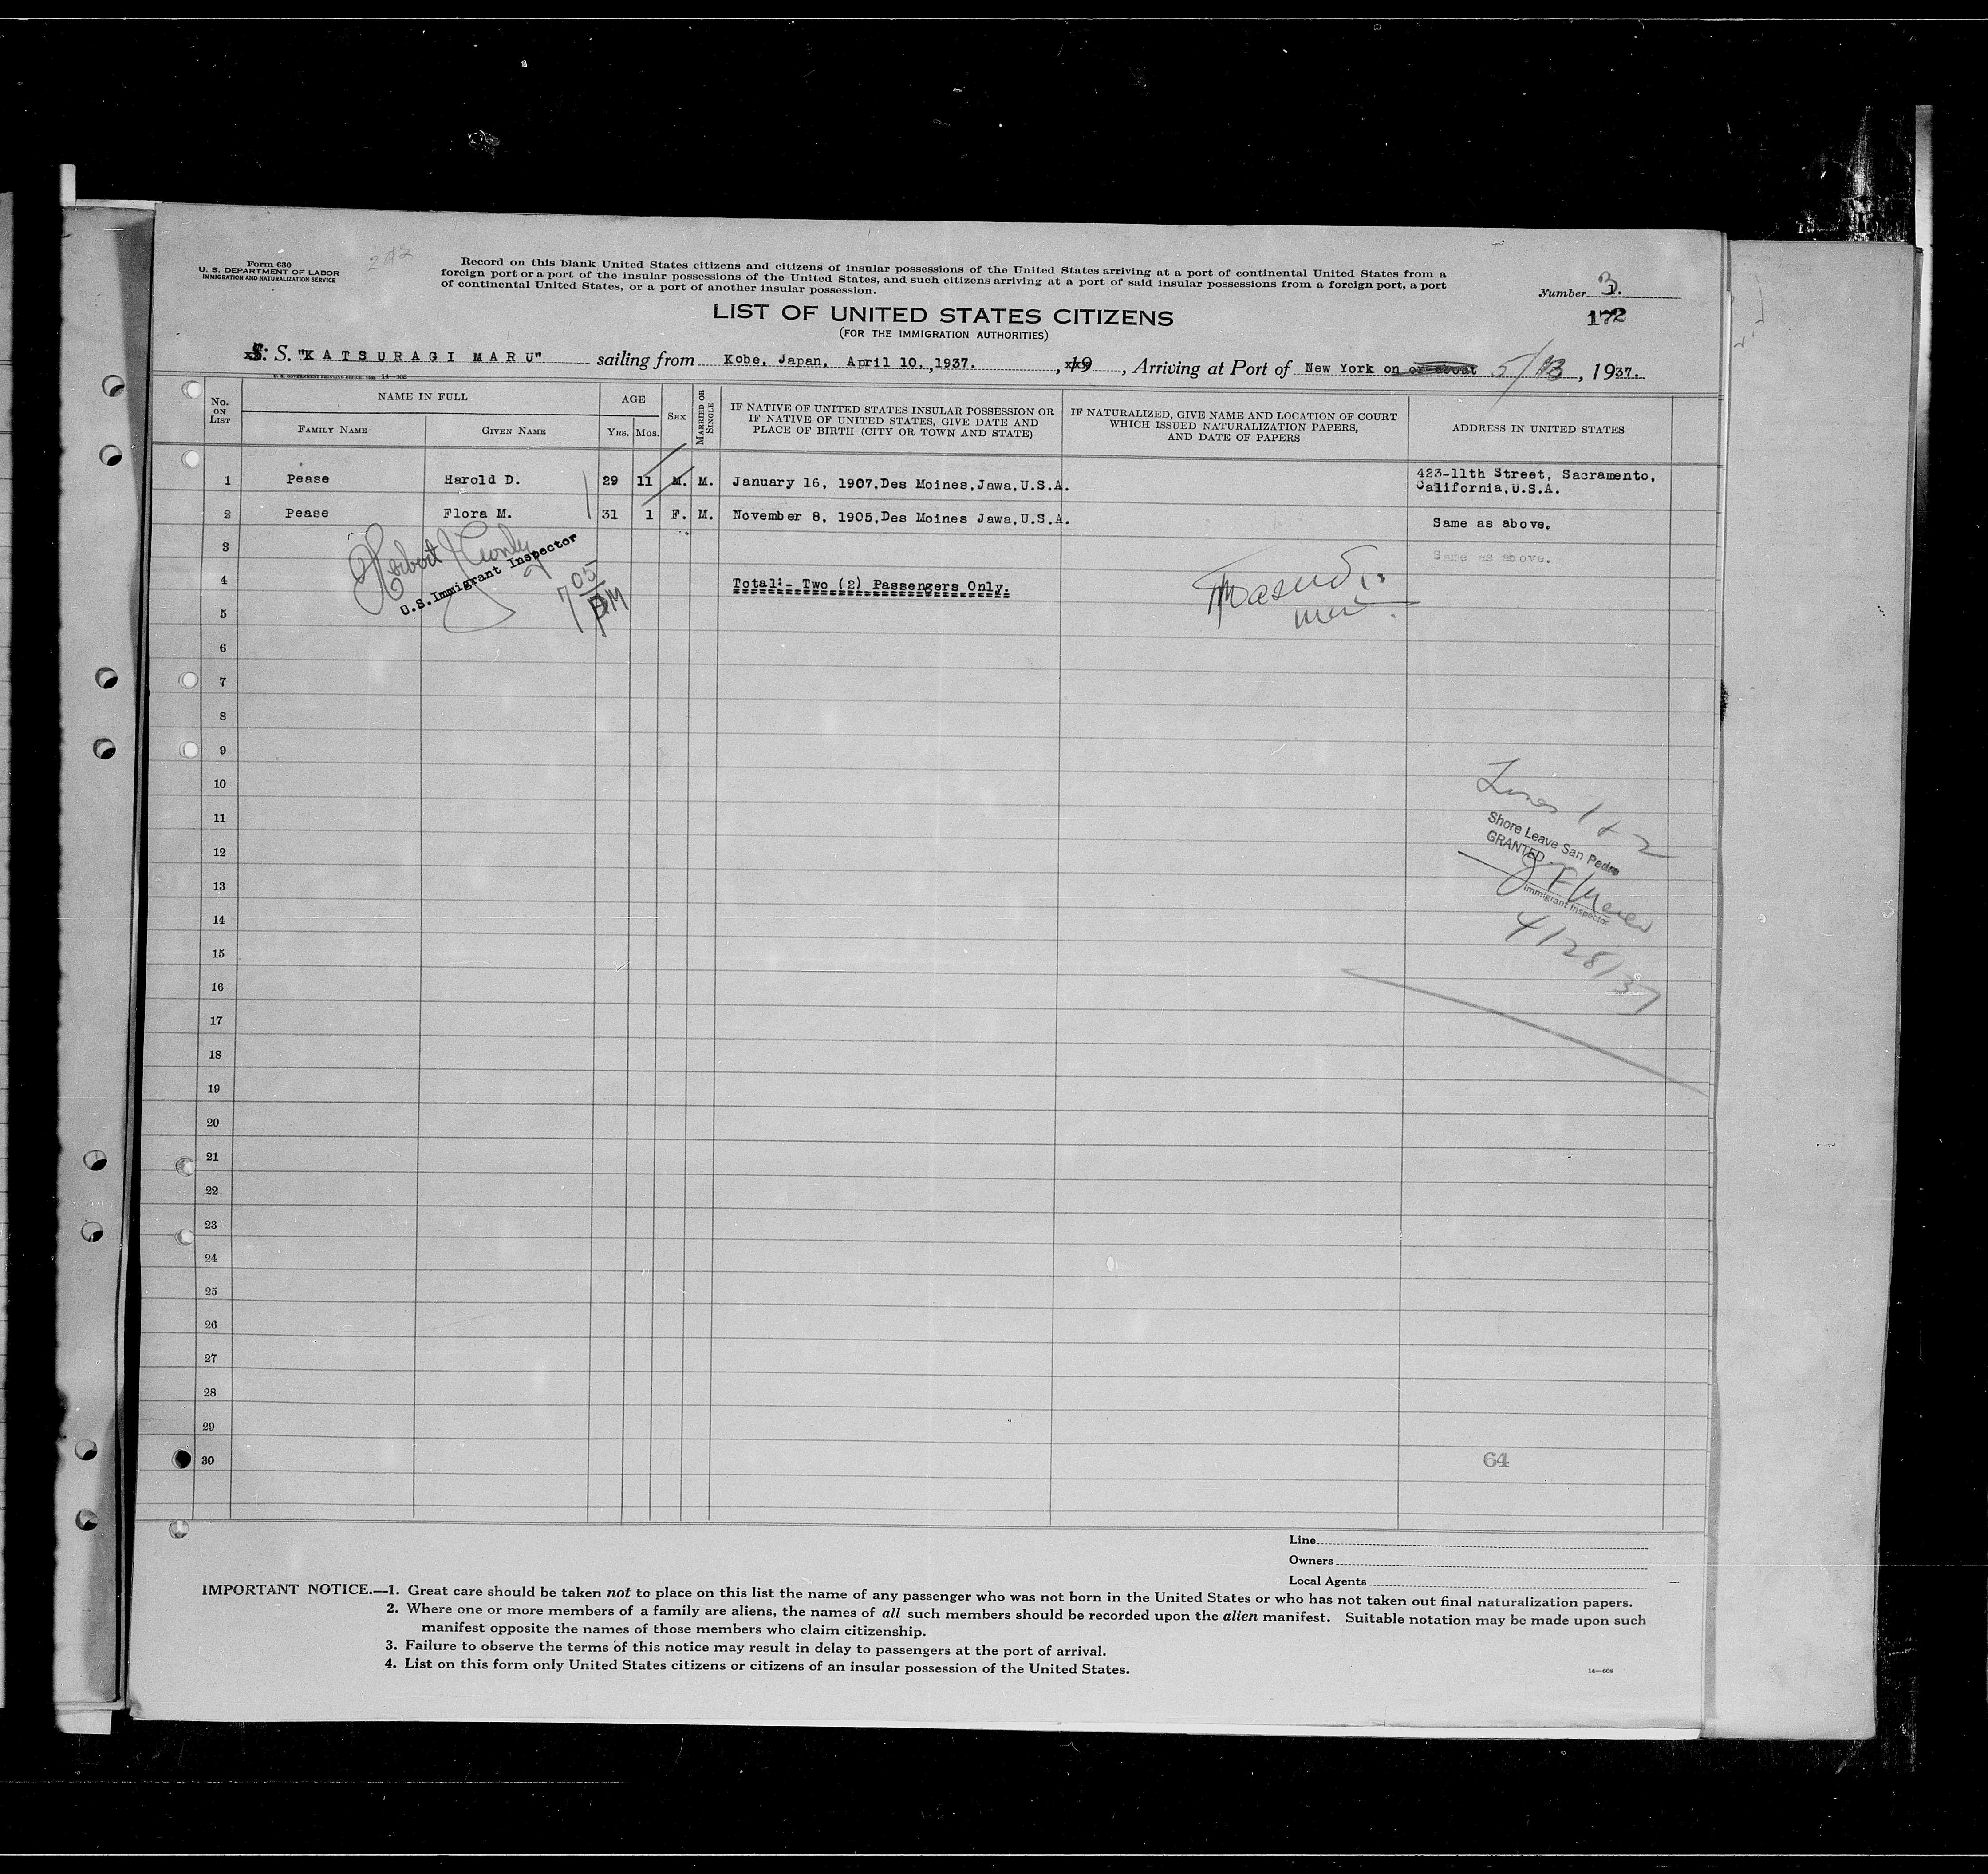 Form 630
U. S. DEPARTMENT OF LABOR
IMMIGRATION AND NATURALIZATION SERVICE
Record on this blank United States citizens and citizens of insular possessions of the United States arriving at a port of continental United States from a
foreign port or a port of the insular possessions of the United States, and such citizens arriving at a port of said insular possessions from a foreign port, a port
of continental United States, or a port of another insular possession.
Number 3.
172
LIST OF UNITED STATES CITIZENS
(FOR THE IMMIGRATION AUTHORITIES)
S. "KATSURAGI MARU" sailing from Kobe, Japan, April 10, ,1937. , 19 , Arriving at Port of New York on or about 5/13 , 1937.
No. ON LIST
NAME IN FULL
FAMILY NAME
GIVEN NAME
AGE
YRS.
MOS.
SEX
MARRIED OR SINGLE
IF NATIVE OF UNITED STATES INSULAR POSSESSION OR
IF NATIVE OF UNITED STATES, GIVE DATE AND
PLACE OF BIRTH (CITY OR TOWN AND STATE)
IF NATURALIZED, GIVE NAME AND LOCATION OF COURT
WHICH ISSUED NATURALIZATION PAPERS,
AND DATE OF PAPERS
ADDRESS IN UNITED STATES
1 Pease Harold D. 29 11 M. M. January 16, 1907,Des Moines,Jawa,U.S.A. 423-11th Street, Sacramento,
California,U.S.A.
2 Pease Flora M. 31 1 F. M. November 8, 1905,Des Moines Jawa,U.S.A. Same as above.
3 Same as above.
U.S. Immigrant Inspector
7 05 PM
4 Total:- Two (2) Passengers Only.
5
6
7
8
9
10
11
Lines 1 & 2
12
Shore Leave San Pedro
GRANTED
13
Immigrant Inspector
14
4/28/37
15
16
17
18
19
20
21
22
23
24
25
26
27
28
29
30
64
Line
Owners
Local Agents
IMPORTANT NOTICE.—1. Great care should be taken not to place on this list the name of any passenger who was not born in the United States or who has not taken out final naturalization papers.
2. Where one or more members of a family are aliens, the names of all such members should be recorded upon the alien manifest. Suitable notation may be made upon such
manifest opposite the names of those members who claim citizenship.
3. Failure to observe the terms of this notice may result in delay to passengers at the port of arrival.
4. List on this form only United States citizens or citizens of an insular possession of the United States.
14—608